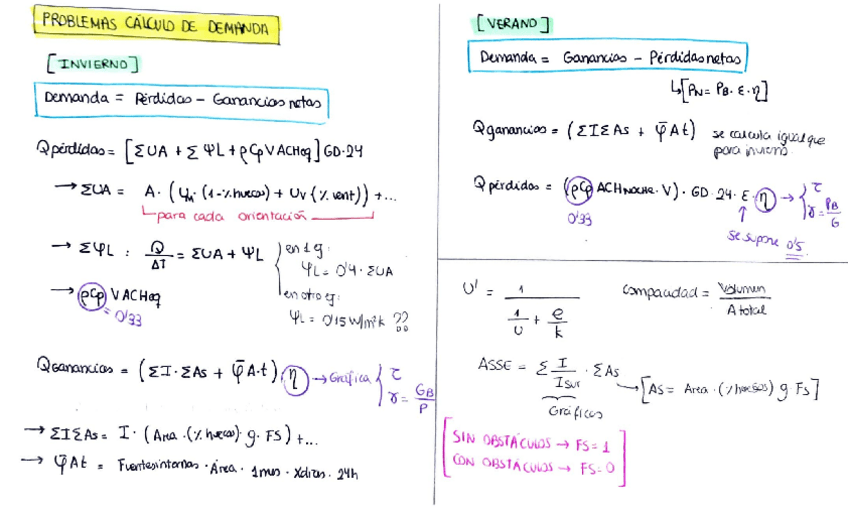 PROBLEMAS CÁLCULO DE DEMANDA
[INVIERNO]
Demanda = Pérdidas - Ganancias netas
Qpérdidas = [ΣUA + ΣΨL + ρCpVACHeq] GD·24
→ ΣUA = A·(UM·(1-%huecos) + Uv(%vent)) + ...
para cada orientación
→ ΣΨL : Q/ΔT = ΣUA + ΨL
en 1 ej:
ΨL = 0'4·ΣUA
en otro ej:
ΨL = 0'15 W/m²K ??
→ ρCp VACHeq
= 0'33
Qganancias = (ΣI·ΣAs + φ̄A·t) η → Gráfica { τ
γ = GB/P
→ ΣIΣAs = I·(Area·(%huecos)·g·FS) + ...
→ φ̄At = Fuentes internas · Área · 1mes · Xdías · 24h
[VERANO]
Demanda = Ganancias - Pérdidas netas
↳ [PN = PB·ε·η]
Qganancias = (ΣIΣAs + φ̄At) se calcula igual que
para invierno.
Qpérdidas = (ρCp ACHNOCHE·V)·GD·24·ε·η → { τ
γ = PB/G
0'33
se supone 0'5
U' = 1 / (1/U + e/k)
compacidad = Volumen / A total
ASSE = Σ I/Isur · ΣAs → [AS = Area·(%huecos) g·FS]
Gráficas
[SIN OBSTÁCULOS → FS = 1
CON OBSTÁCULOS → FS = 0]